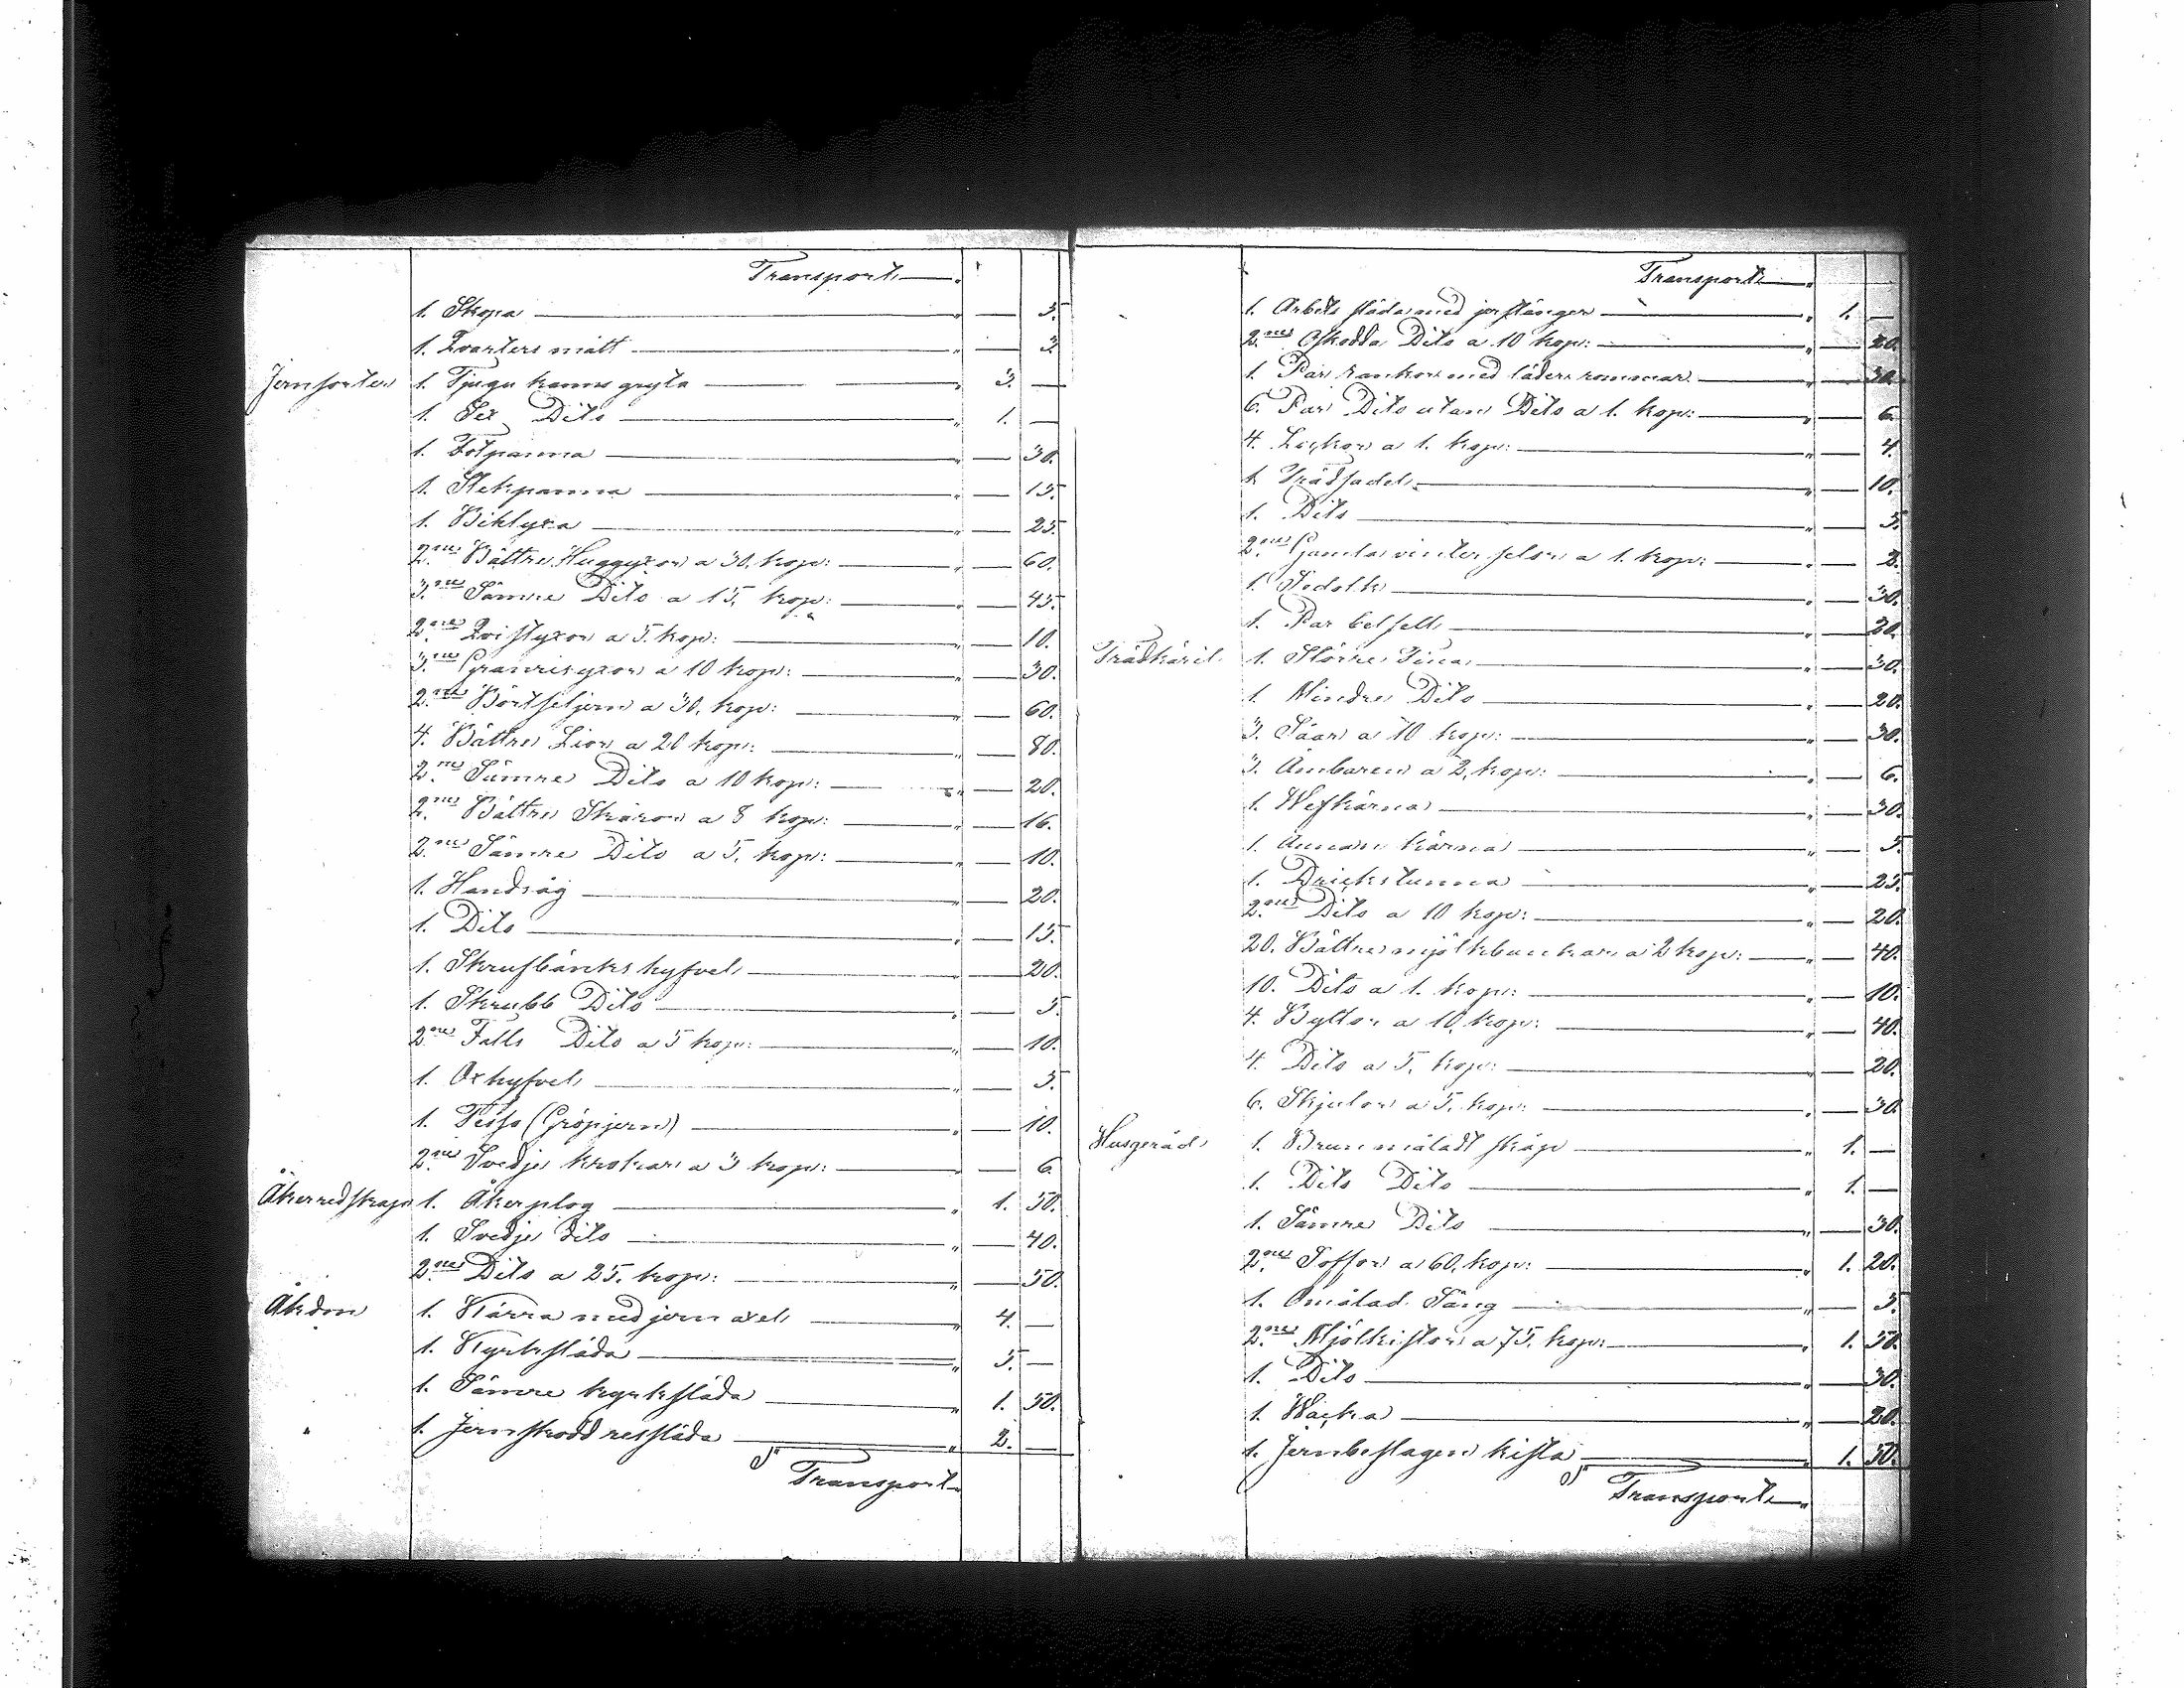 Transport
1. Skopa — 3.
1. Qvarters mått — 3.
Jernsorter 1. Tjugu kanns gryta 3. —
1. Sex Dito 1. —
1. Fotpanna — 30.
1. Stekpanna — 15.
1. Biklyxa — 25.
2ne Bättre Huggyxor a 30. kop: — 60.
3ne Sämre Dito a 15. kop: — 45.
2ne Qvistyxor a 5. kop: — 10.
3ne Granrisyxor a 10 kop: — 30.
2ne a 30. kop: — 60.
4. Bättre Lior a 20 kop: — 80.
2ne Sämre Dito a 10 kop: — 20.
2ne Bättre Skäror a 8 kop: — 16.
2ne Sämre Dito a 5. kop: — 10.
1. Handsåg — 20.
1. Dito — 15.
1. Skrufbänks hyfvel — 20.
1. Skrubb Dito — 5.
2ne Falls Dito a 5 kop: — 10.
1. Oxhyfvel — 3.
1. (Gröpjern) — 10.
2ne Svedje krokar a 3 kop: — 6
Åkerredskap 1. Åkerplog 1. 50.
1. Svedje dito — 40.
2ne Dito a 25. kop: — 50.
Åkdon 1. Kärra med jern axel 4. —
1. Kyrksläda 5. —
1. Sämre kyrksläda 1. 50.
1. Jernskodd ressläda 2. —
Transport
Transport
1. Arbets släda med jerstänger 1. —
2ne Oskodda Dito a 10 kop: — 20.
1. Par rankor med läders remmar — 30.
6. Par Dito utan Dito a 1. kop: — 6.
4. a 1. kop: — 4.
1. Trädsadel — 10.
1. Dito — 5.
2ne Gamla vinter selar a 1. kop: — 2.
1. Sedolk — 30.
1. Par betsell — 20.
Trädkäril 1. Större Tina — 30.
1. Mindre Dito — 20.
3. Såar a 10 kop: — 30.
3. Ämbaren a 2. kop: — 6.
1. Wefkärna — 30.
1. Annan kärna — 5.
1. Drickstunna — 25.
2ne Dito a 10 kop: — 20.
20. Bättre mjölkbunkar a 2 kop: — 40.
10. Dito a 1. kop: — 10.
4. Byttor a 10. kop: — 40.
4. Dito a 5. kop: — 20.
6. Skjulor a 5. kop: — 30.
Husgeråd 1. Brunmåladt skåp 1. —
1. Dito Dito 1. —
1. Sämre Dito — 30.
2ne Soffor a 60. kop: 1. 20.
1. Omålad Säng — 5.
2ne Mjölkistor a 75. kop: 1. 50.
1. Dito — 30.
1. Wacka — 20.
1. Jernbeslagen kista 1. 50.
Transport